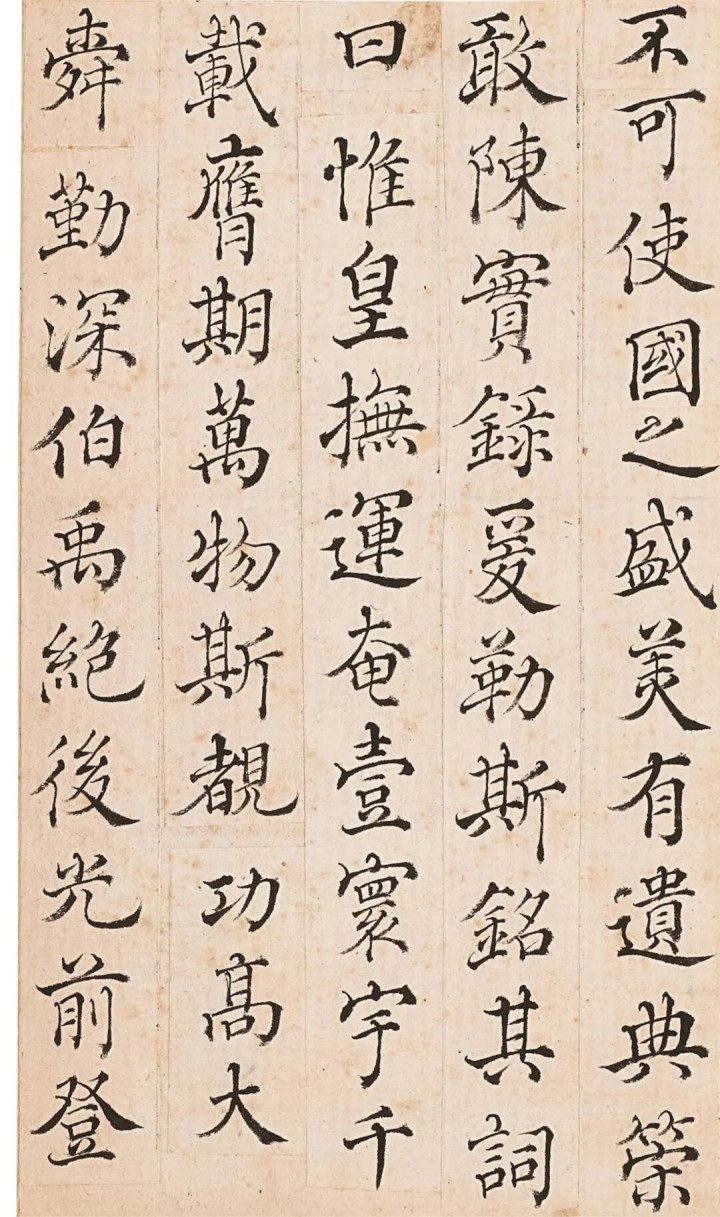 不可使國之盛美有遺典策
敢陳實錄爰勒斯銘其詞
曰惟皇撫運奄壹寰宇千
載膺期萬物斯覩功高大
舜勤深伯禹絶後光前登